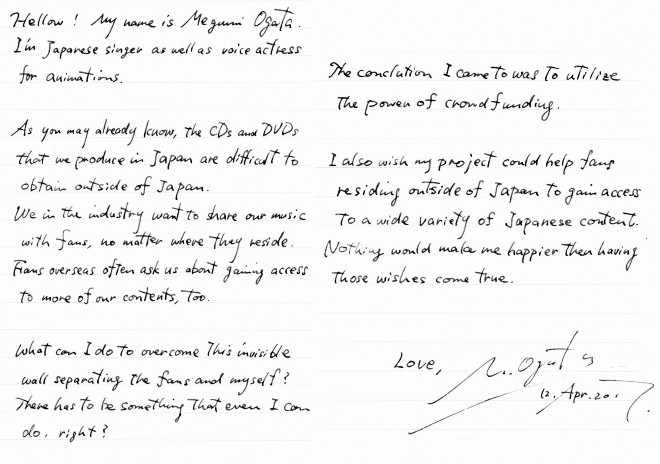 Hellow! My name is Megumi Ogata.
I'm Japanese singer as well as voice actress
for animations.
As you may already know, the CDs and DVDs
that we produce in Japan are difficult to
obtain outside of Japan.
We in the industry want to share our music
with fans, no matter where they reside.
Frans overseas often ask us about gaining access
to more of our contents, too.
What can I do to overcome this invisible
wall separating the fans and myself?
There has to be something that even I can
do, right?
The conclution I came to was to utilize
the power of crowdfunding.
I also wish my project could help fans
residing outside of Japan to gain access
to a wide variety of Japanese content.
Nothing would make me happier then having
those wishes come true.
Love,
12. Apr.